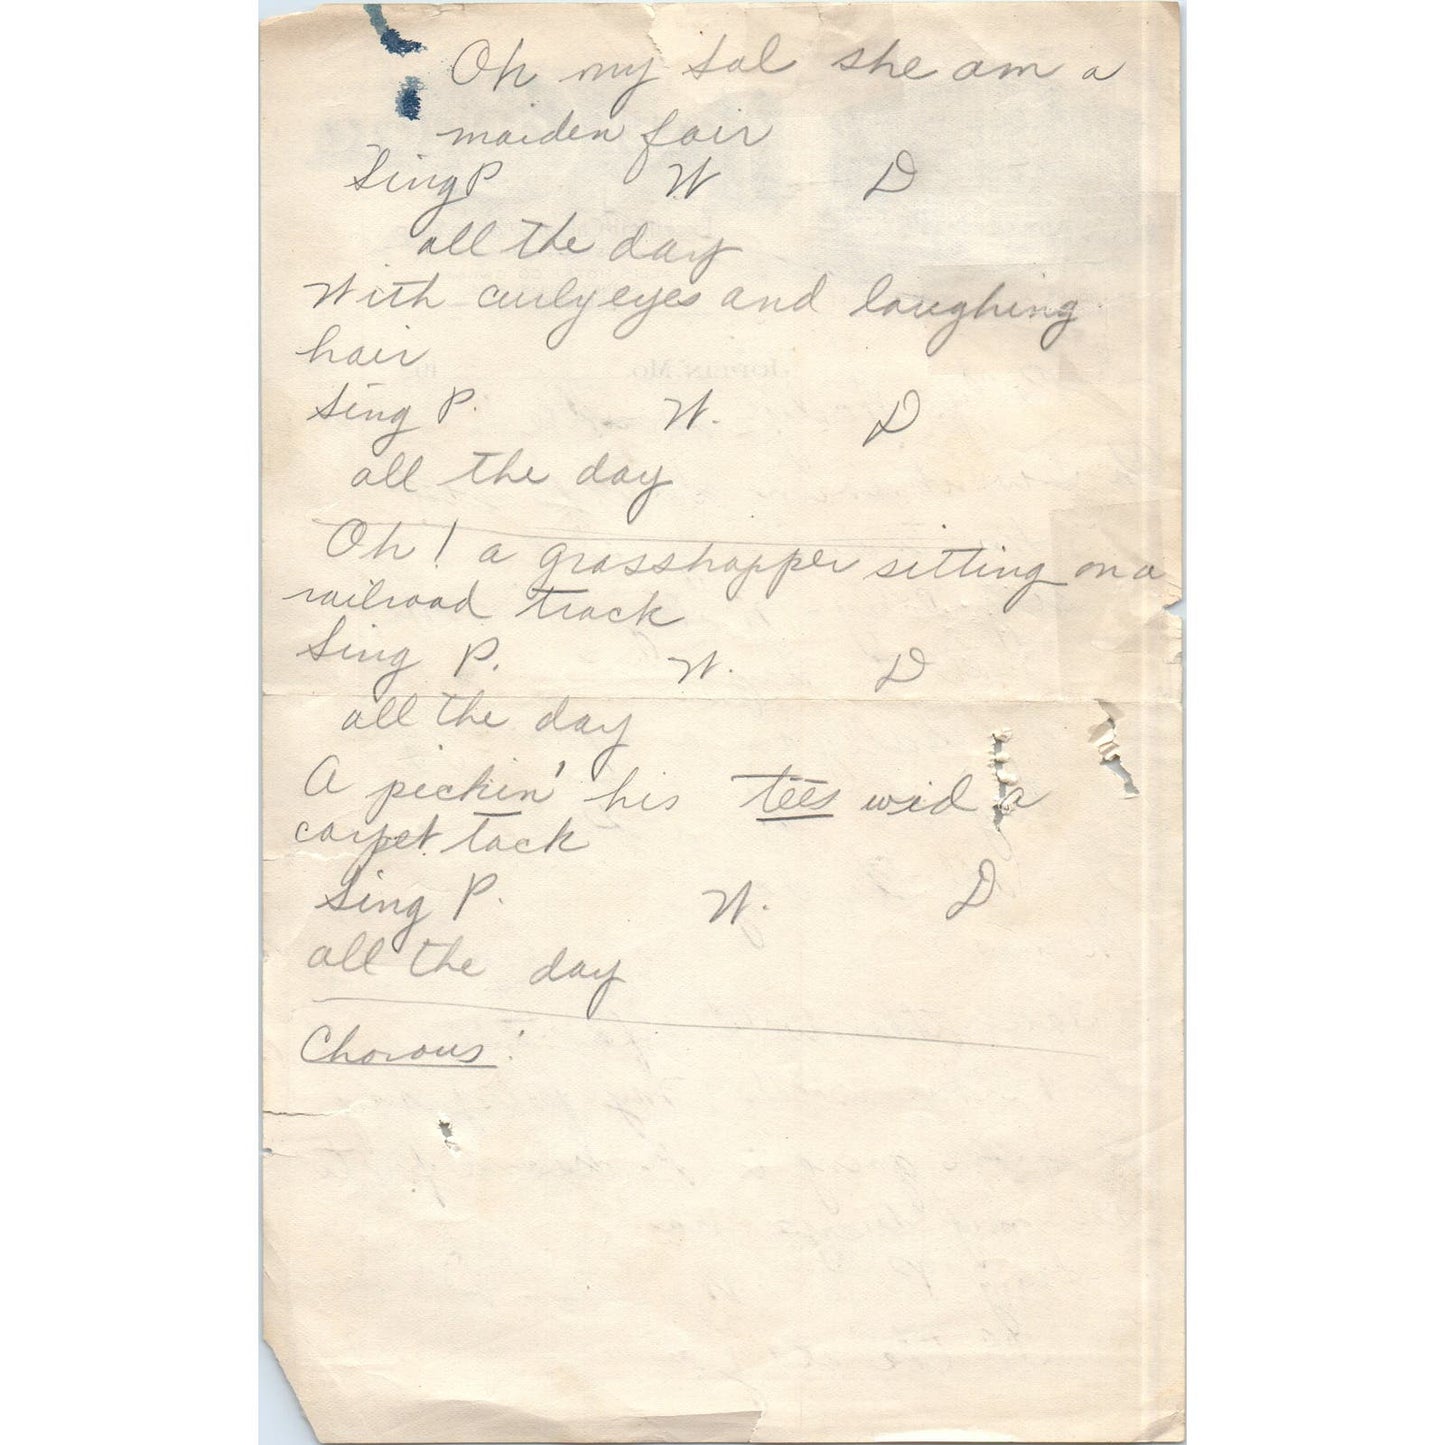 Oh my Sal she am a
maiden fair
Sing P W D
all the day
With curly eyes and laughing
hair
Sing P. W. D
all the day
Oh! a grasshopper sitting on a
railroad track
Sing P. W. D
all the day
A pickin' his tees wid a
carpet tack
Sing P. W. D
all the day
Chorous:
JOPLIN, MO.